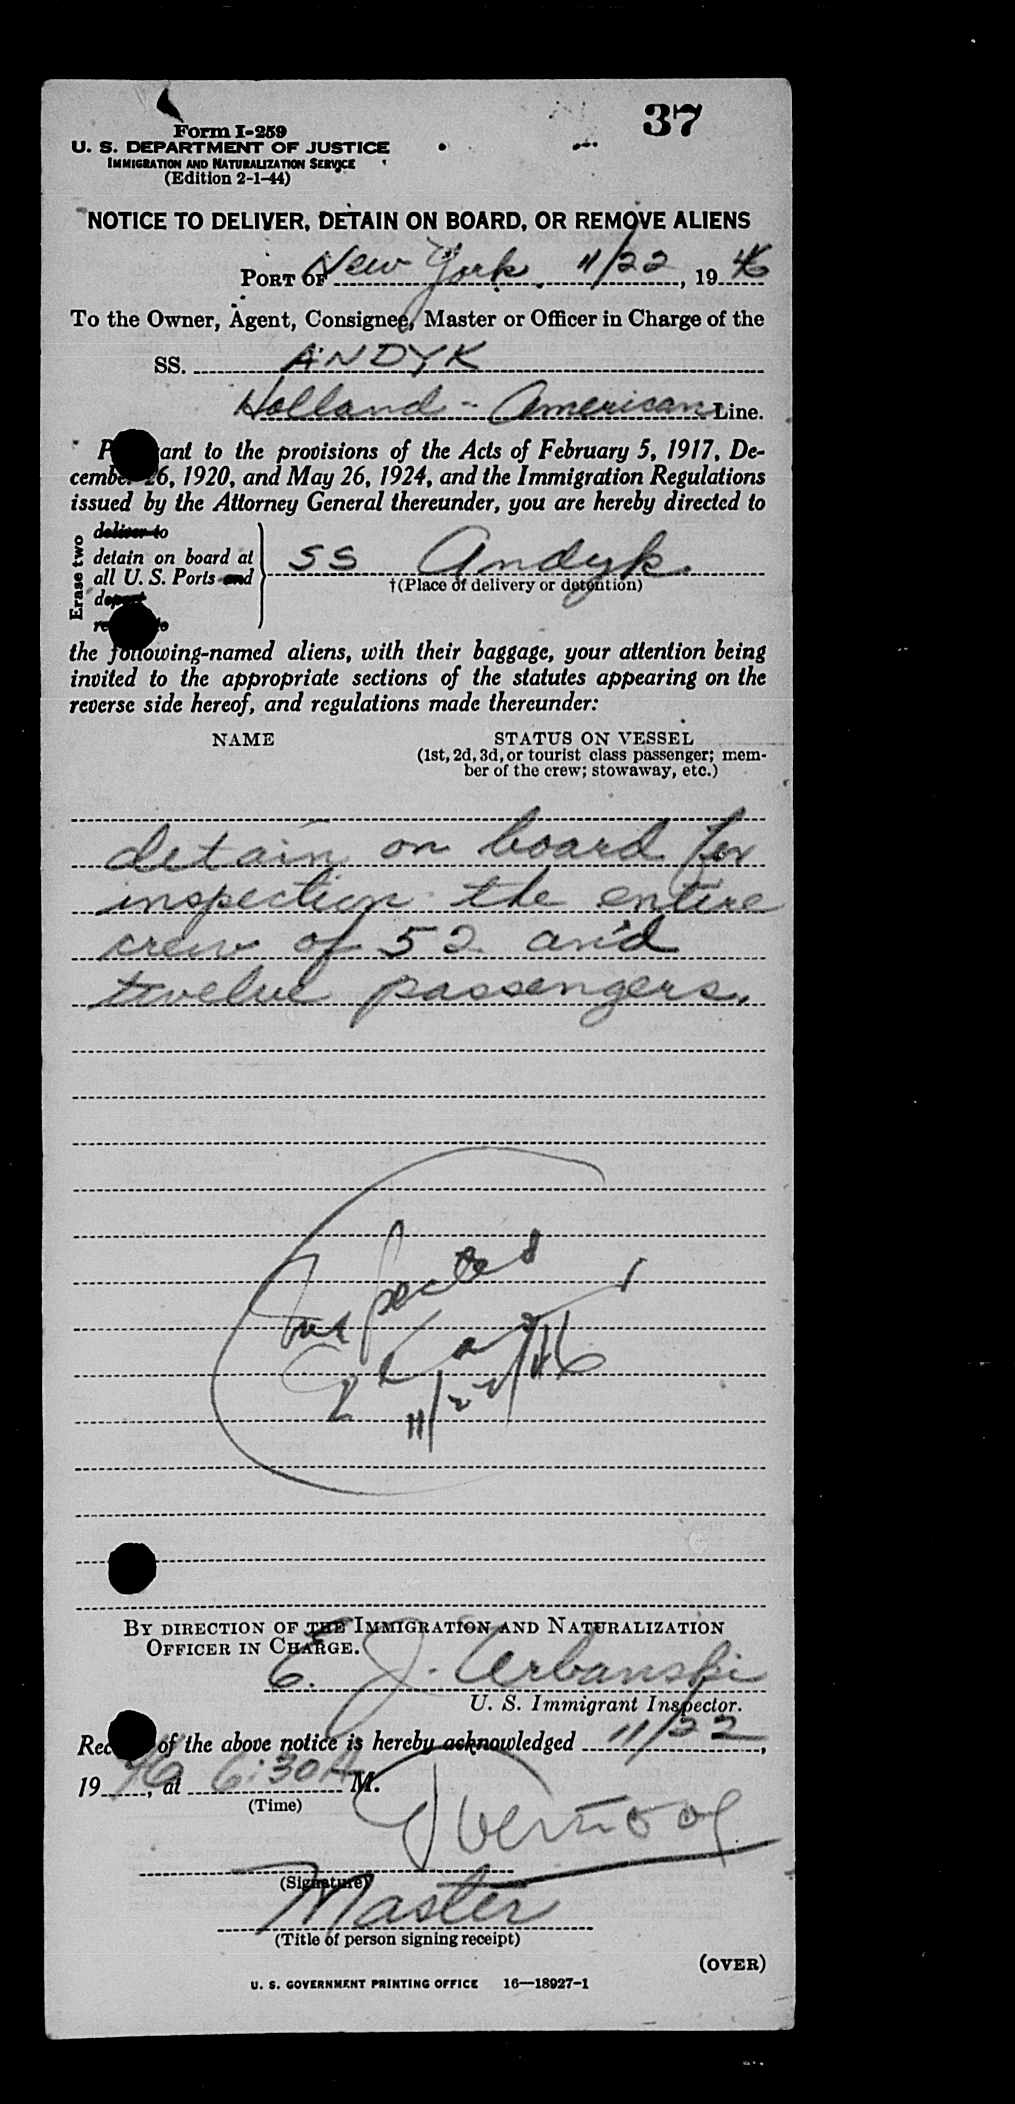 37
Form I-259
U. S. DEPARTMENT OF JUSTICE
IMMIGRATION AND NATURALIZATION SERVICE
(Edition 2-1-44)
NOTICE TO DELIVER, DETAIN ON BOARD, OR REMOVE ALIENS
PORT OF New York 11/22, 1946
To the Owner, Agent, Consignee, Master or Officer in Charge of the
SS. ANDYK
Holland-American Line.
P ant to the provisions of the Acts of February 5, 1917, De-
cember 26, 1920, and May 26, 1924, and the Immigration Regulations
issued by the Attorney General thereunder, you are hereby directed to
Erase two
deliver to
detain on board at
all U. S. Ports and
depart
re
SS Andyk
†(Place of delivery or detention)
the following-named aliens, with their baggage, your attention being
invited to the appropriate sections of the statutes appearing on the
reverse side hereof, and regulations made thereunder:
NAME STATUS ON VESSEL
(1st, 2d, 3d, or tourist class passenger; mem-
ber of the crew; stowaway, etc.)
detain on board for
inspection the entire
crew of 52 and
twelve passengers.
Inspected
11/22/46
BY DIRECTION OF THE IMMIGRATION AND NATURALIZATION
OFFICER IN CHARGE.
E. J. Urbanski
U. S. Immigrant Inspector.
Rec of the above notice is hereby acknowledged 11/22,
1946, at 6:30 A M.
(Time)
(Signature)
Master
(Title of person signing receipt)
(OVER)
U. S. GOVERNMENT PRINTING OFFICE 16—18927-1